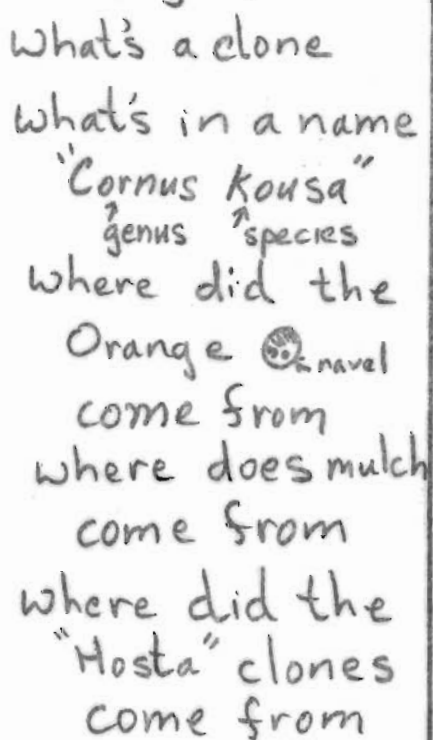 what's a clone
what's in a name
"Cornus Kousa"
genus species
where did the
Orange navel
come from
where does mulch
come from
where did the
"Hosta" clones
come from